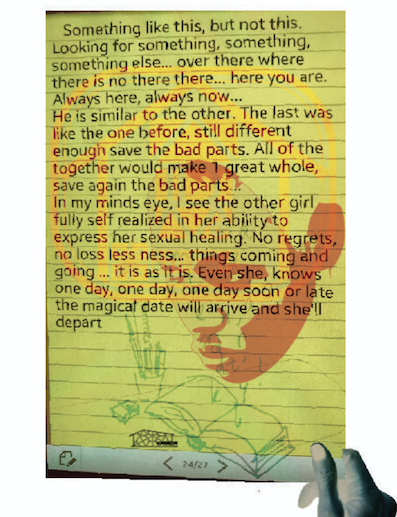 Something like this, but not this.
Looking for something, something,
something else... over there where
there is no there there... here you are.
Always here, always now...
He is similar to the other. The last was
like the one before, still different
enough save the bad parts. All of the
together would make 1 great whole,
save again the bad parts...
In my minds eye, I see the other girl
fully self realized in her ability to
express her sexual healing. No regrets,
no loss less ness... things coming and
going ... it is as it is. Even she, knows
one day, one day, one day soon or late
the magical date will arrive and she'll
depart
< 24/27 >